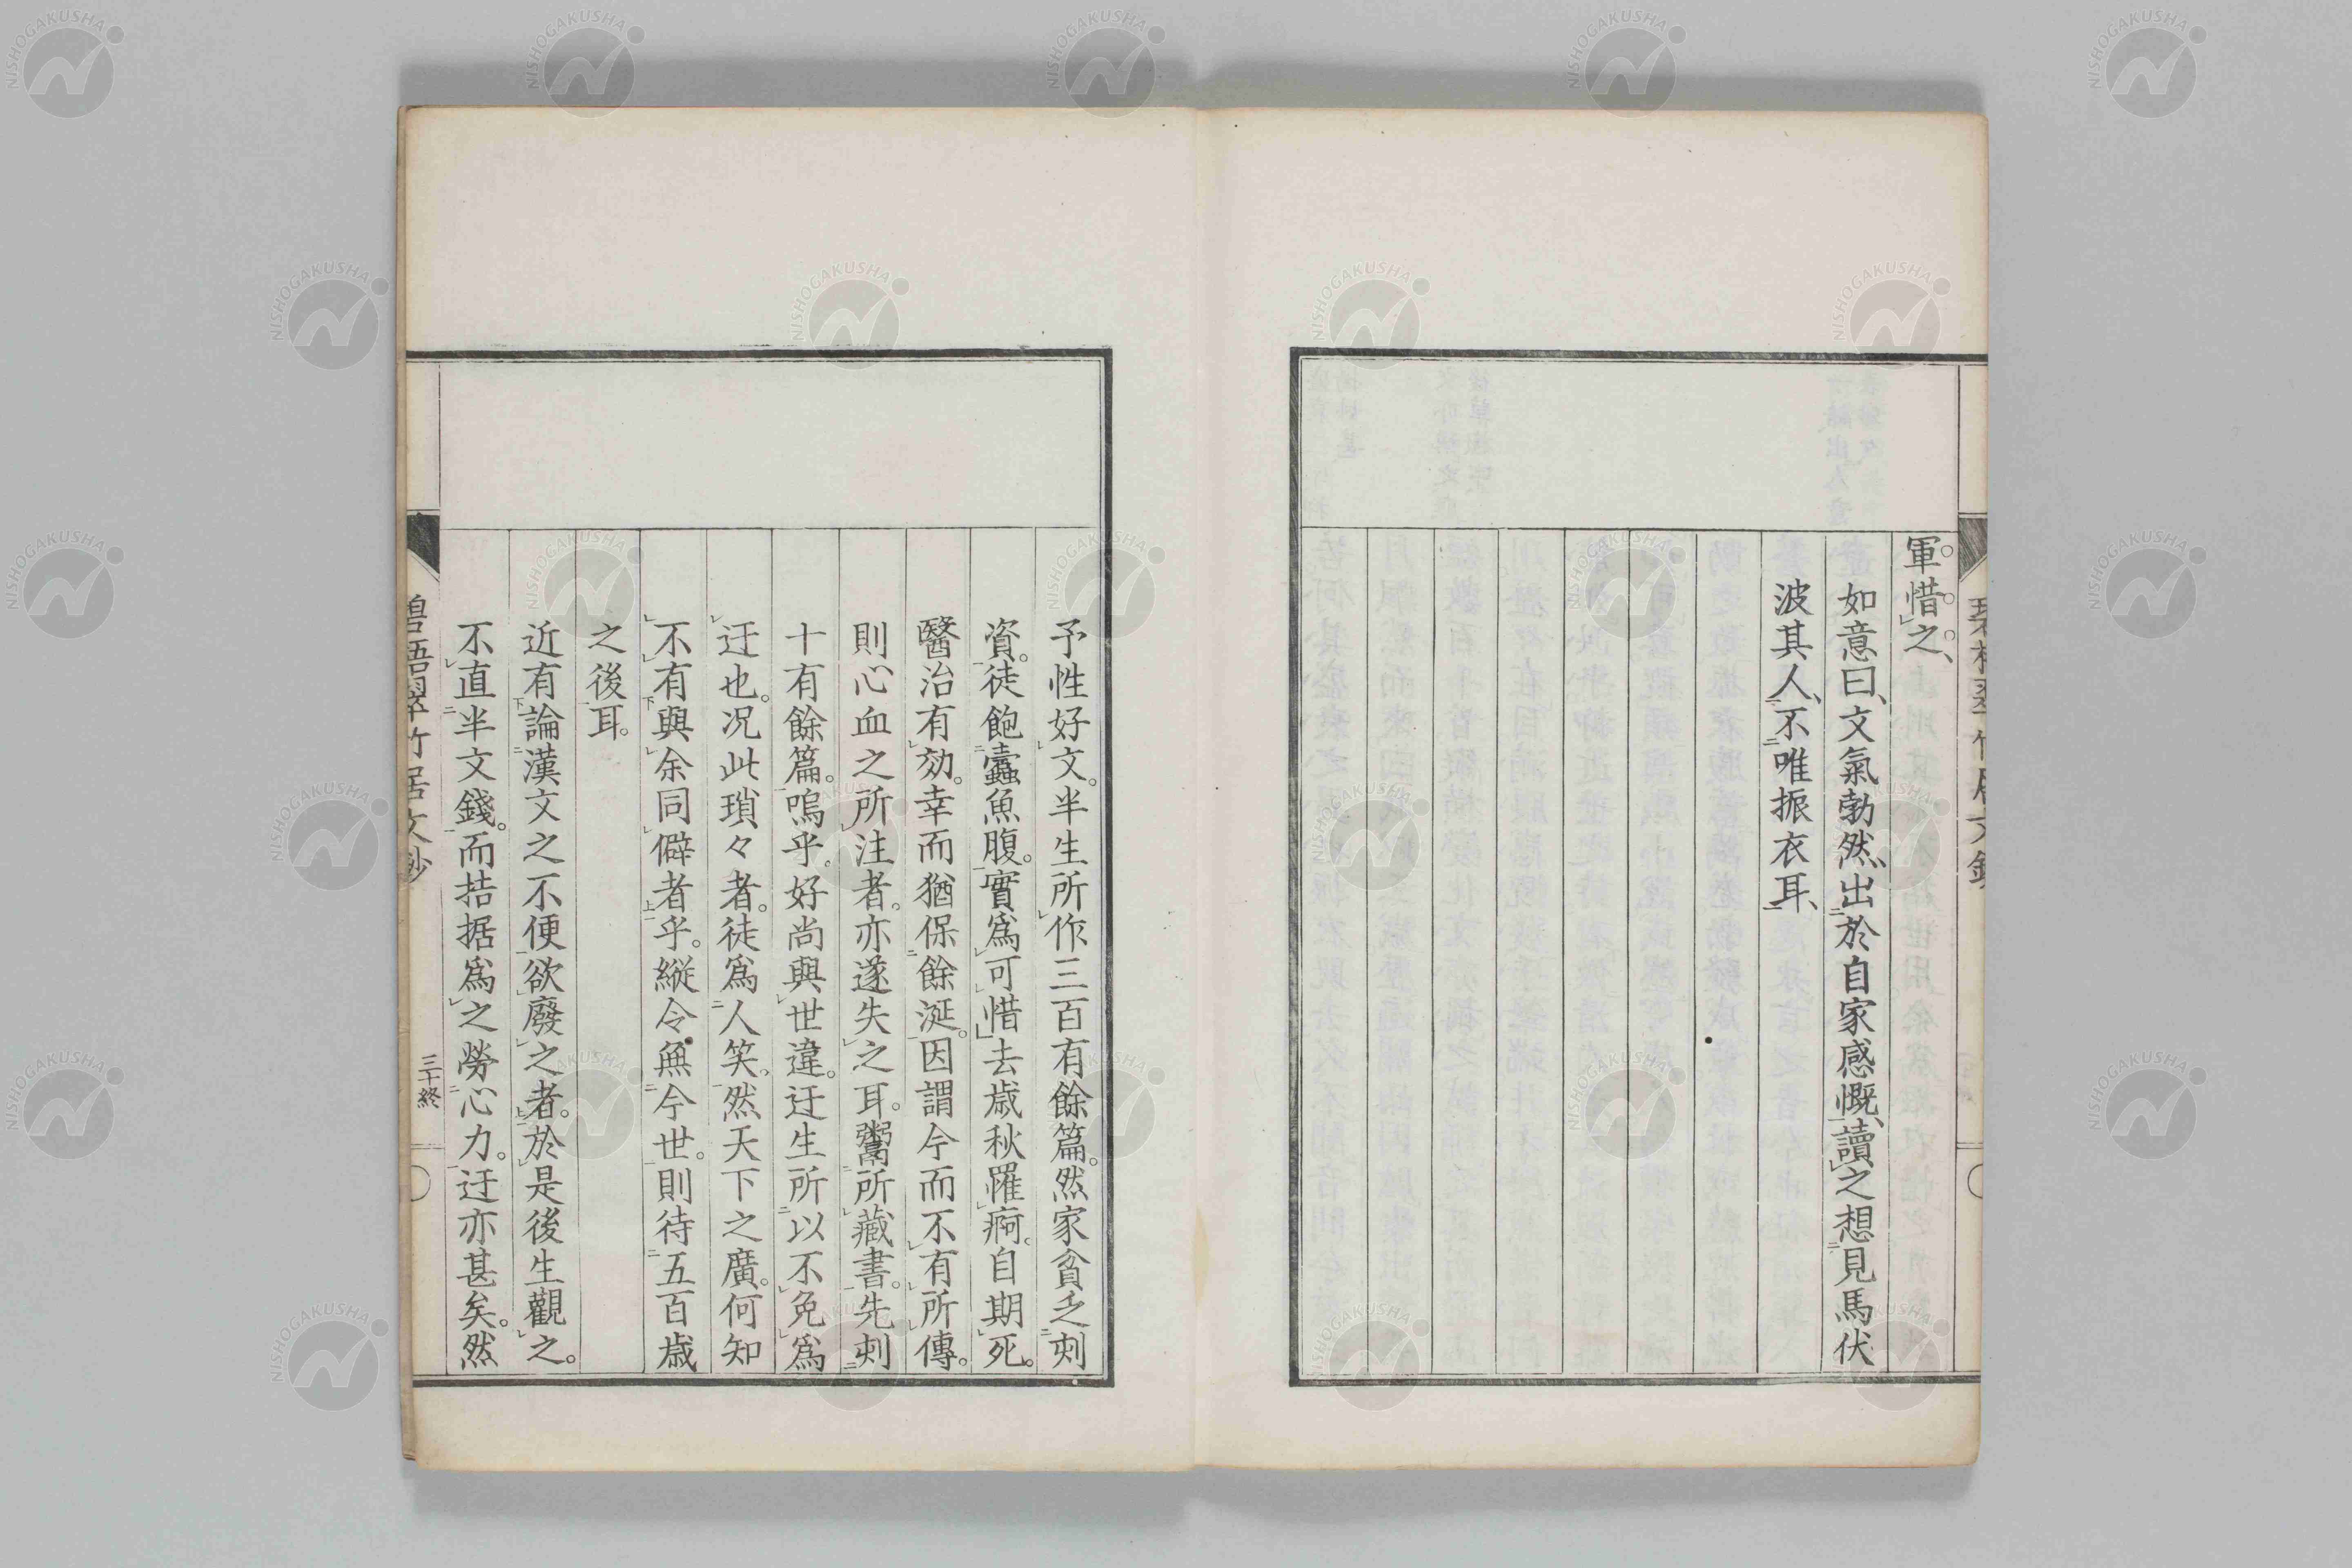 軍惜之、
如意曰、文氣勃然、出於自家感慨、讀之想見馬伏
波其人、不唯振衣耳、
予性好文。半生所作三百有餘篇。然家貧乏刺
資。徒飽蠹魚腹。實爲可惜去歳秋罹痾。自期死。
醫治有効。幸而猶保餘涎。因謂今而不有所傳。
則心血之所注者。亦遂失之耳。鬻所藏書。先刺
十有餘篇。嗚乎。好尚與世違。迂生所以不免爲
迂也。况此瑣々者。徒爲人笑。然天下之廣。何知
不有與余同僻者乎。縦令無今世。則待五百歳
之後耳。
近有論漢文之不便欲廢之者。於是後生觀之。
不直半文錢。而拮据爲之勞心力。迂亦甚矣。然
碧梧翠竹居文鈔
三十終
NISHOGAKUSHA